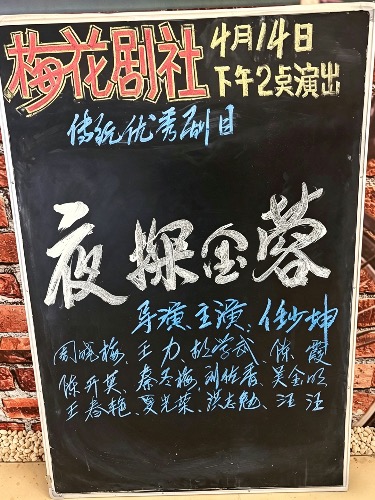 梅花剧社
4月14日
下午2点演出
传统优秀剧目
夜探金蓉
导演、主演、任少坤
周晓梅、王力、彭学武、陈霞
陈开英、秦冬梅、刘佑香、吴金明
王春艳、夏光荣、洪志勉、汪汪